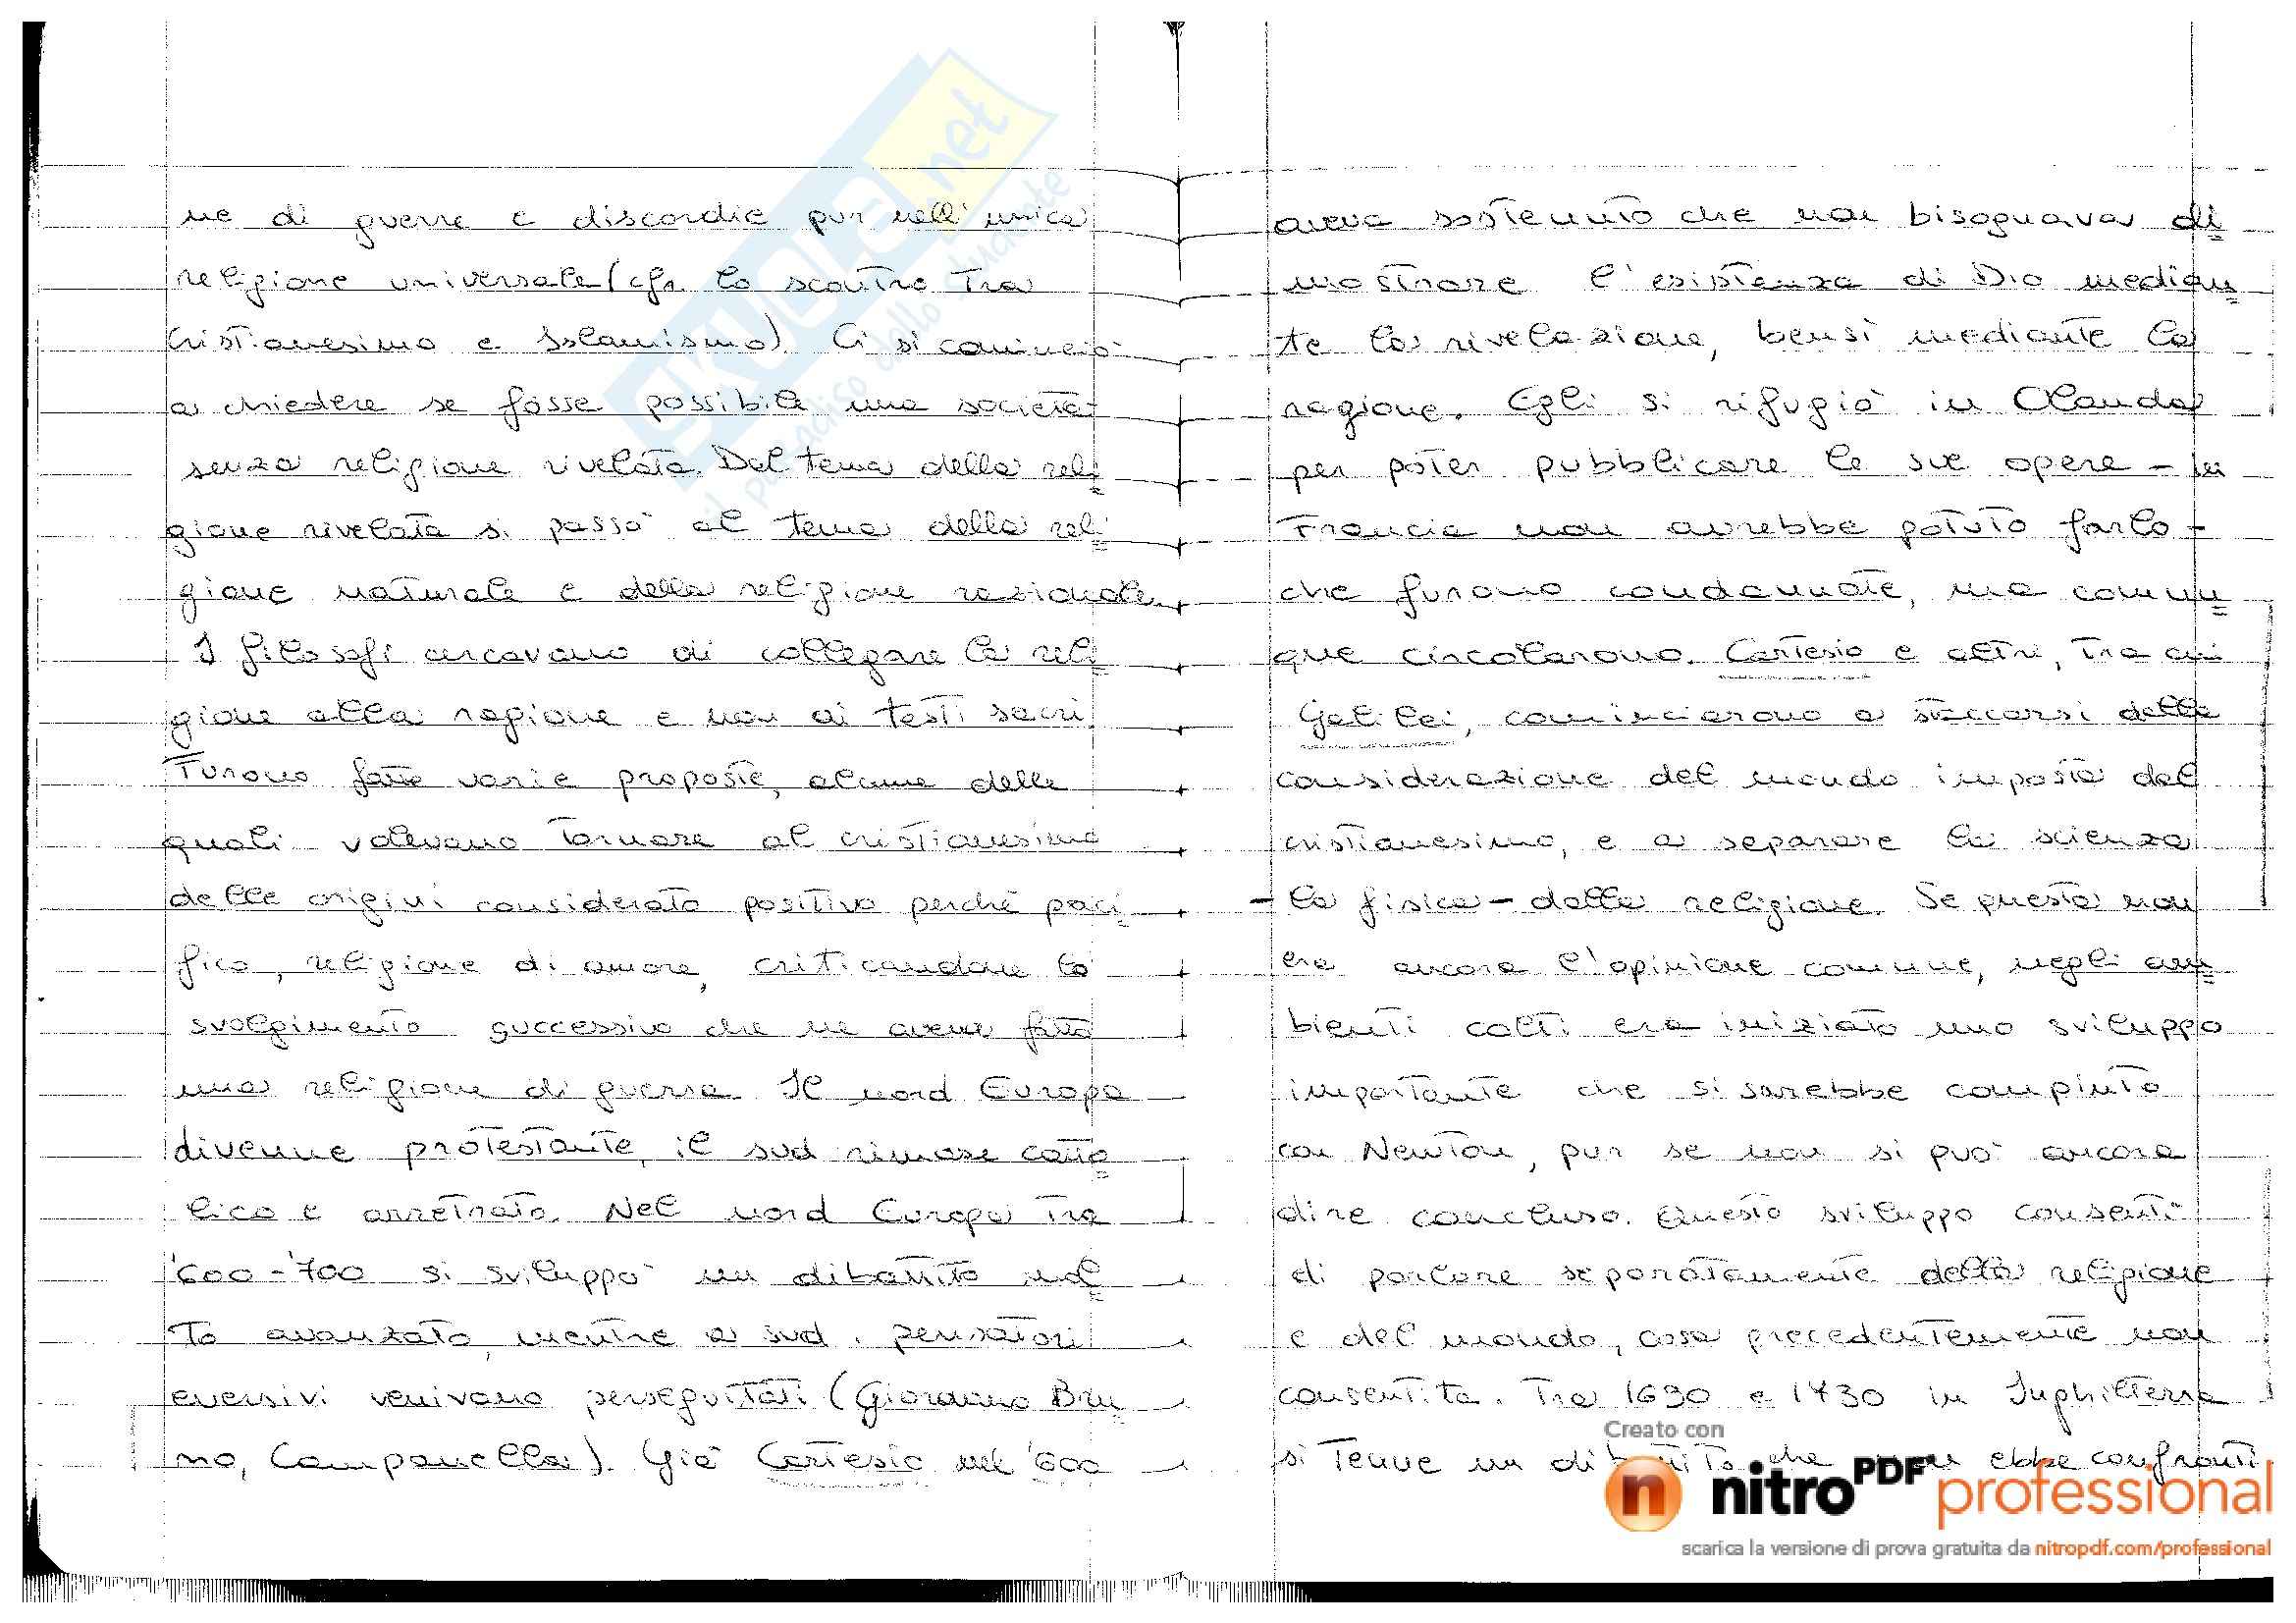 ne di guerre e discordie pur nell'unica
religione universale (cfr. lo scontro tra
Cristianesimo e Islamismo). Ci si cominciò
a chiedere se fosse possibile una società
senza religione rivelata. Dal tema della reli
gione rivelata si passò al tema della reli
gione naturale e della religione razionale.
I filosofi cercavano di collegare la reli
gione alla ragione e non ai testi sacri
Furono fatte varie proposte, alcune delle
quali volevano tornare al cristianesimo
delle origini considerato positivo perché paci
fico, religione di amore, criticandone lo
svolgimento successivo che ne aveva fatto
una religione di guerra. Il nord Europa
divenne protestante, il sud rimase catto
lico e arretrato. Nel nord Europa tra
'600-'700 si sviluppò un dibattito mol
to avanzato, mentre a sud i pensatori
eversivi venivano perseguitati (Giordano Bru
no, Campanella). Già Cartesio nel '600
aveva sostenuto che non bisognava di
mostrare l'esistenza di Dio median
te la rivelazione, bensì mediante la
ragione. Egli si rifugiò in Olanda
per poter pubblicare le sue opere - in
Francia non avrebbe potuto farlo -
che furono condannate, ma comun
que circolarono. Cartesio e altri, tra cui
Galilei, cominciarono a staccarsi dalla
considerazione del mondo imposta dal
cristianesimo, e a separare la scienza
- la fisica - dalla religione. Se questa non
era ancora l'opinione comune, negli am
bienti colti era iniziato uno sviluppo
importante che si sarebbe compiuto
con Newton, pur se non si può ancora
dire concluso. Questo sviluppo consentì
di parlare separatamente della religione
e del mondo, cosa precedentemente non
consentita. Tra 1690 e 1730 in Inghilterra
si tenne un dibattito che non ebbe confronti
skuola.net
il paradiso dello studente
Creato con
nitroPDF professional
scarica la versione di prova gratuita da nitropdf.com/professional